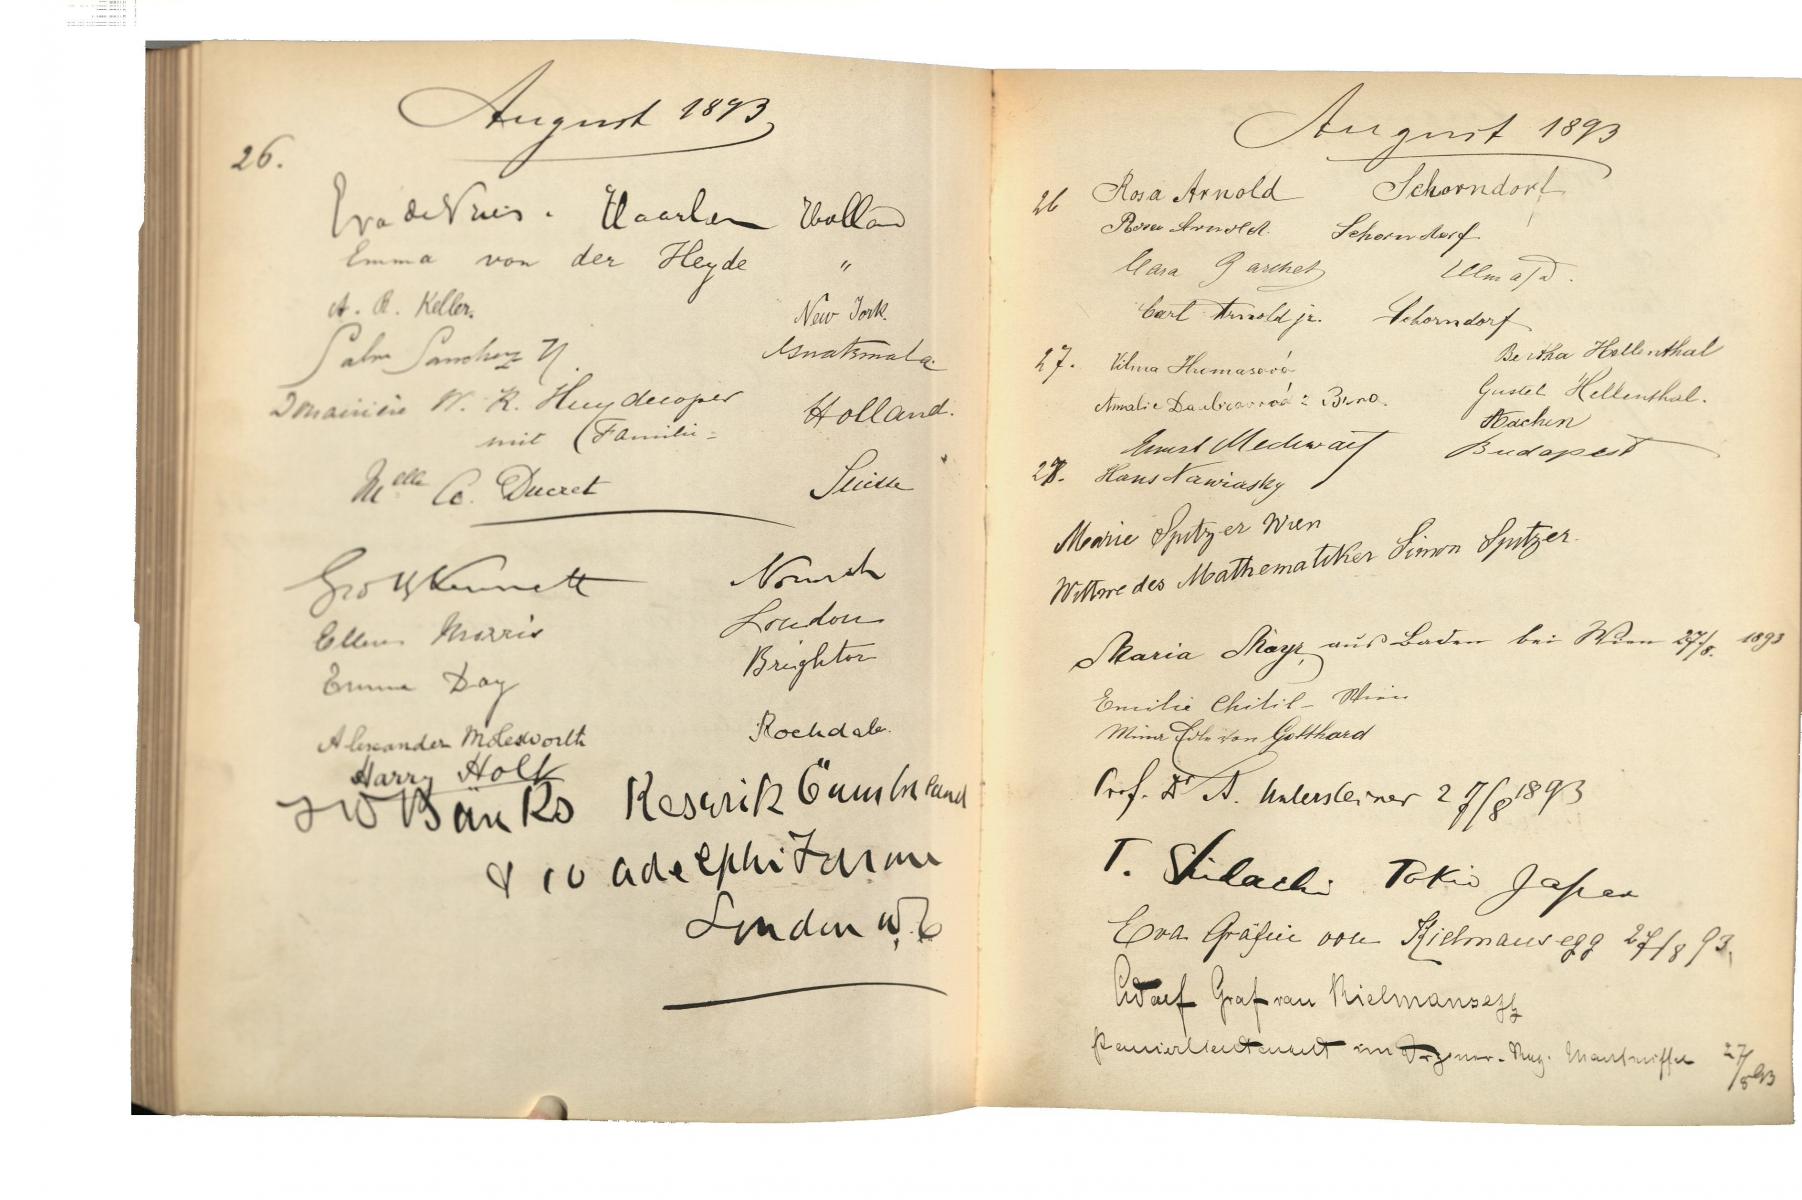 August 1893
26.
Eva de Vries. Haarlem Holland
Emma von der Heyde "
A. R. Keller. New York.
Guatemala
W. R. Huydecoper Holland.
mit Familie
Melle C. Ducret Suisse
Geo W Kennett Norwich
Ellen Morris London
Emma Day Brighton
Alexander Molesworth Rochdale.
Harry Holt
J W Banks Keswick Cumberland
& 10 Adelphi Terrace
London W.C
August 1893
26 Rosa Arnold Schorndorf
Rosa Arnold. Schorndorf
Ulm a/D.
Carl Arnold jr. Schorndorf
27. Vilma Humasová Bertha Hellenthal
Amalie Brno. Gustel Hellenthal.
Aachen
Ernst Mechwart Budapest
27. Hans Nawiasky
Marie Spitzer Wien
Wittwe des Mathematiker Simon Spitzer.
Maria Mayr, aus Baden bei Wien 27/8. 1893
Emilie Chitil - Wien
Minna Edle von Gotthard
Prof. Dr A. Untersteiner 27/8 1893
T. Shidachi Tokio Japan
Eva Gräfin von Kielmansegg 27/8 93.
Adolf Graf von Kielmansegg
im Dragoner-Reg. 27/8 93